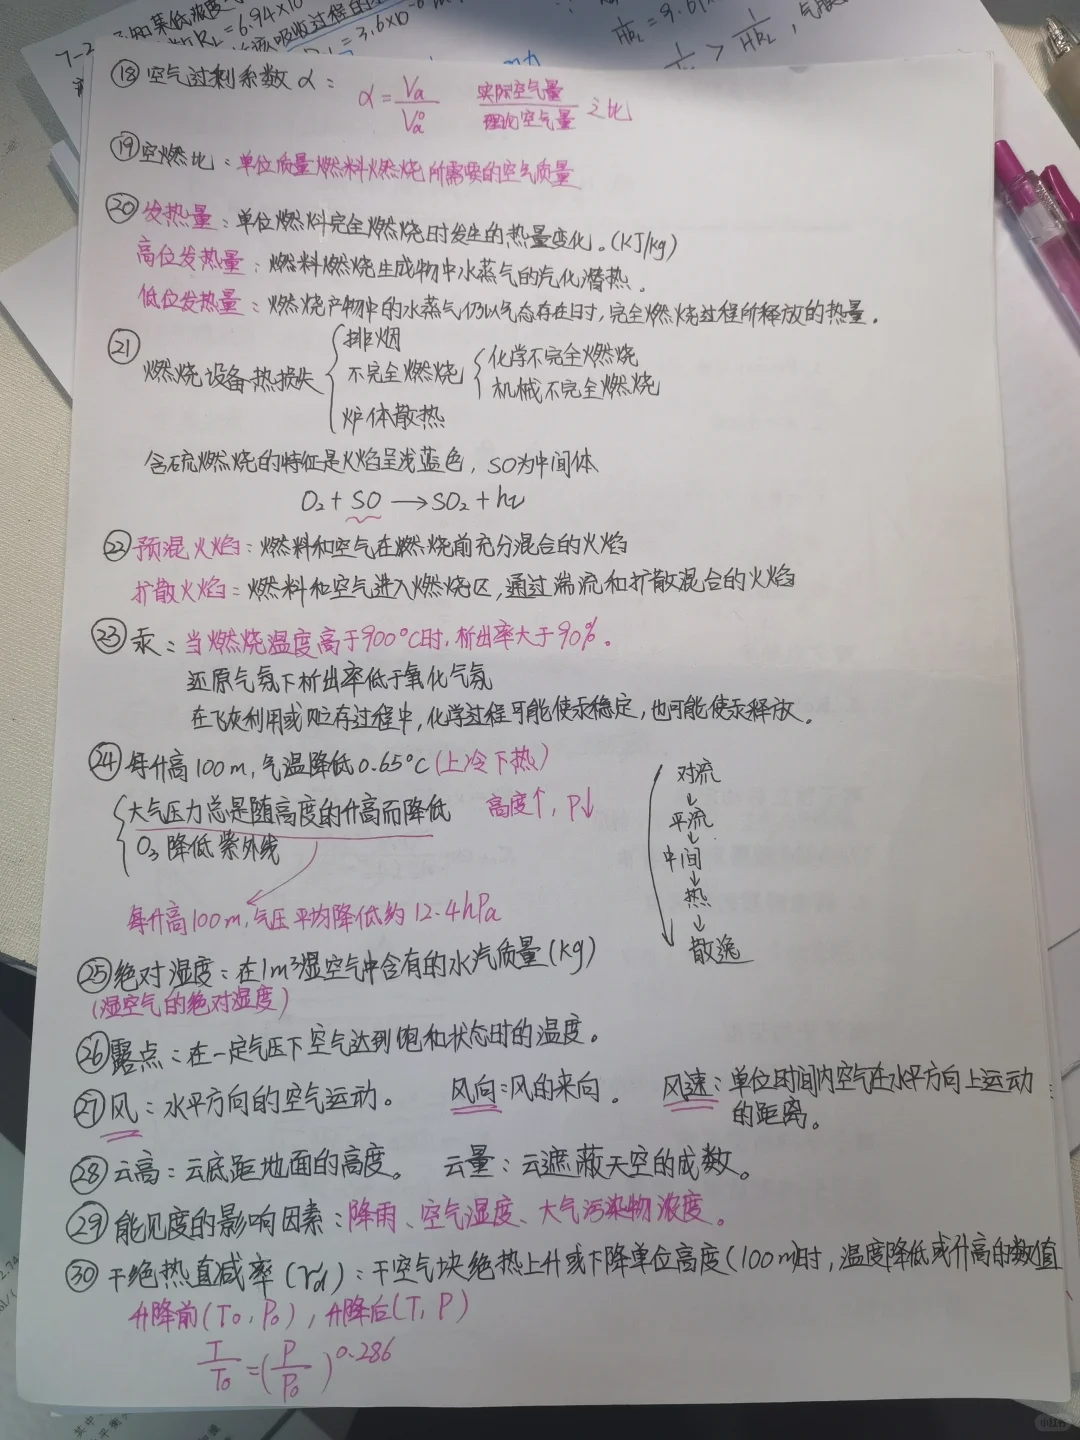 R_L = 6.94×10
该吸收过程的
= 3.6×10
⑱ 空气过剩系数α： α = Va/Va° 实际空气量/理论空气量 之比
⑲ 空燃比：单位质量燃料燃烧所需要的空气质量
⑳ 发热量：单位燃料完全燃烧时发生的热量变化。(KJ/kg)
高位发热量：燃料燃烧生成物中水蒸气的汽化潜热。
低位发热量：燃烧产物中的水蒸气仍以气态存在时，完全燃烧过程所释放的热量。
㉑ 燃烧设备热损失
排烟
不完全燃烧
化学不完全燃烧
机械不完全燃烧
炉体散热
含硫燃烧的特征是火焰呈浅蓝色，SO为中间体
O₂ + SO → SO₂ + hν
㉒ 预混火焰：燃料和空气在燃烧前充分混合的火焰
扩散火焰：燃料和空气进入燃烧区，通过湍流和扩散混合的火焰
㉓ 汞：当燃烧温度高于900°C时，析出率大于90%。
还原气氛下析出率低于氧化气氛
在飞灰利用或贮存过程中，化学过程可能使汞稳定，也可能使汞释放。
㉔ 每升高100m，气温降低0.65°C (上冷下热)
大气压力总是随高度的升高而降低 高度↑，P↓
O₃降低紫外线
每升高100m，气压平均降低约12.4hPa
对流
↓
平流
↓
中间
↓
热
↓
散逸
㉕ 绝对湿度：在1m³湿空气中含有的水汽质量(kg)
(湿空气的绝对湿度)
㉖ 露点：在一定气压下空气达到饱和状态时的温度。
㉗ 风：水平方向的空气运动。 风向：风的来向。 风速：单位时间内空气在水平方向上运动
的距离。
㉘ 云高：云底距地面的高度。 云量：云遮蔽天空的成数。
㉙ 能见度的影响因素：降雨、空气湿度、大气污染物浓度。
㉚ 干绝热直减率(γd)：干空气块绝热上升或下降单位高度(100m)时，温度降低或升高的数值
升降前(T₀, P₀)，升降后(T, P)
T/T₀ = (P/P₀)^0.286